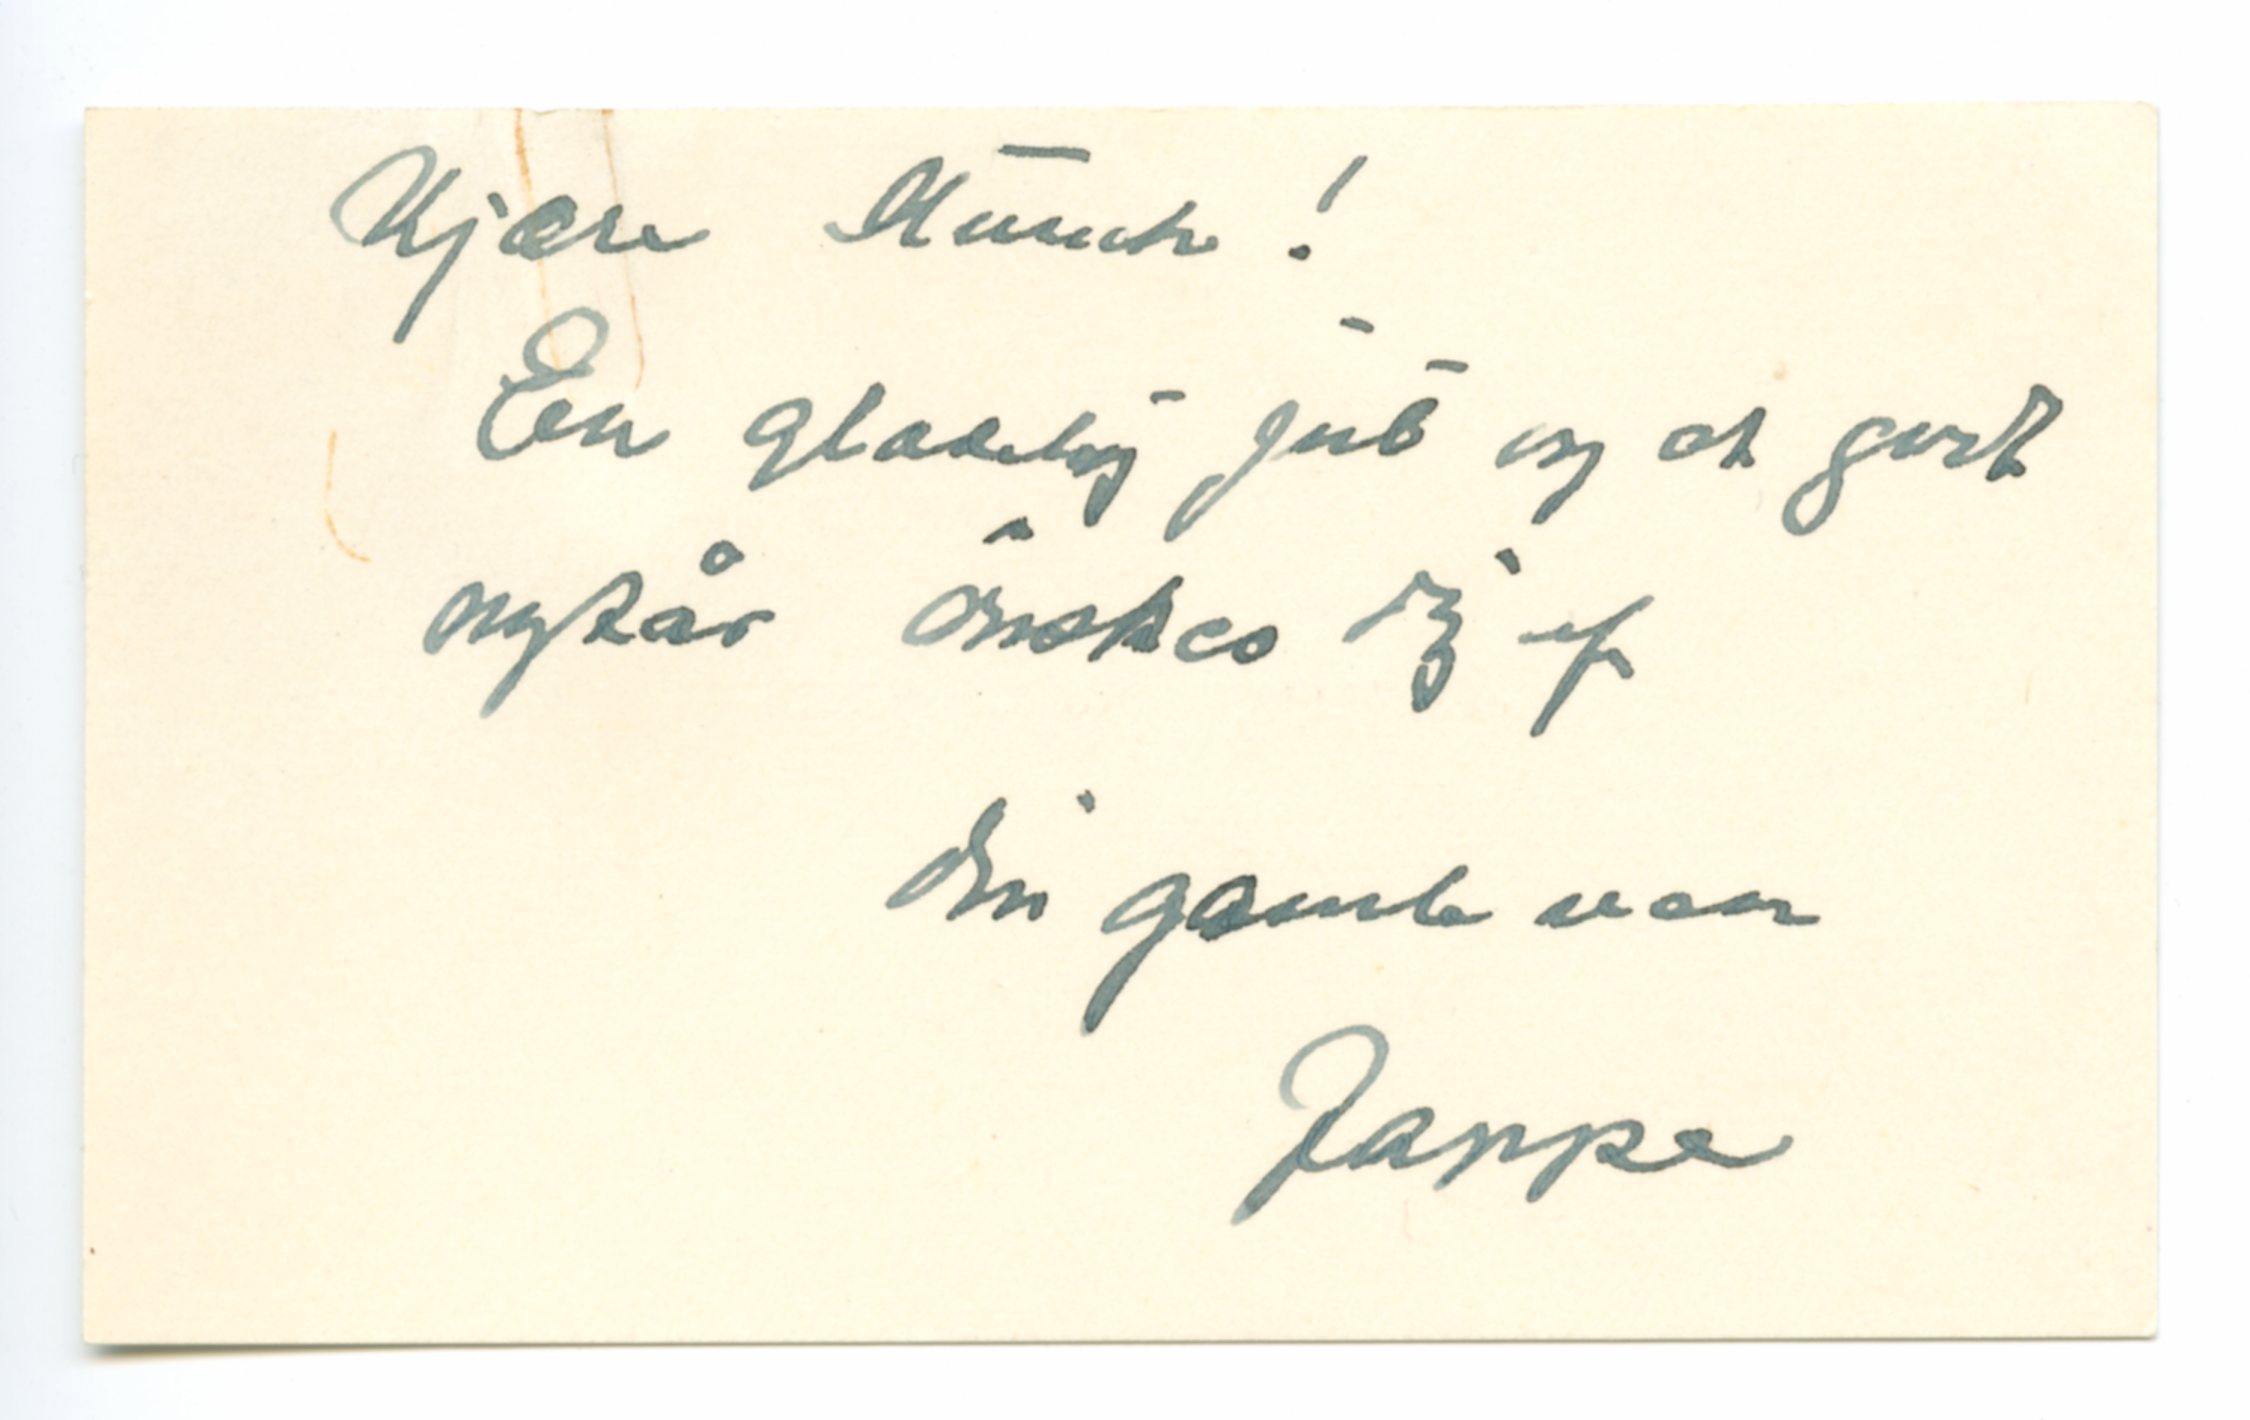 Kjære Munch!
En gladelig jul og et godt
nytår önskes dig af
din gamle ven
Jappe